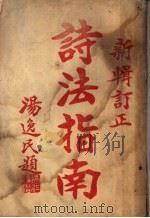 新輯訂正
詩法指南
湯逸民題